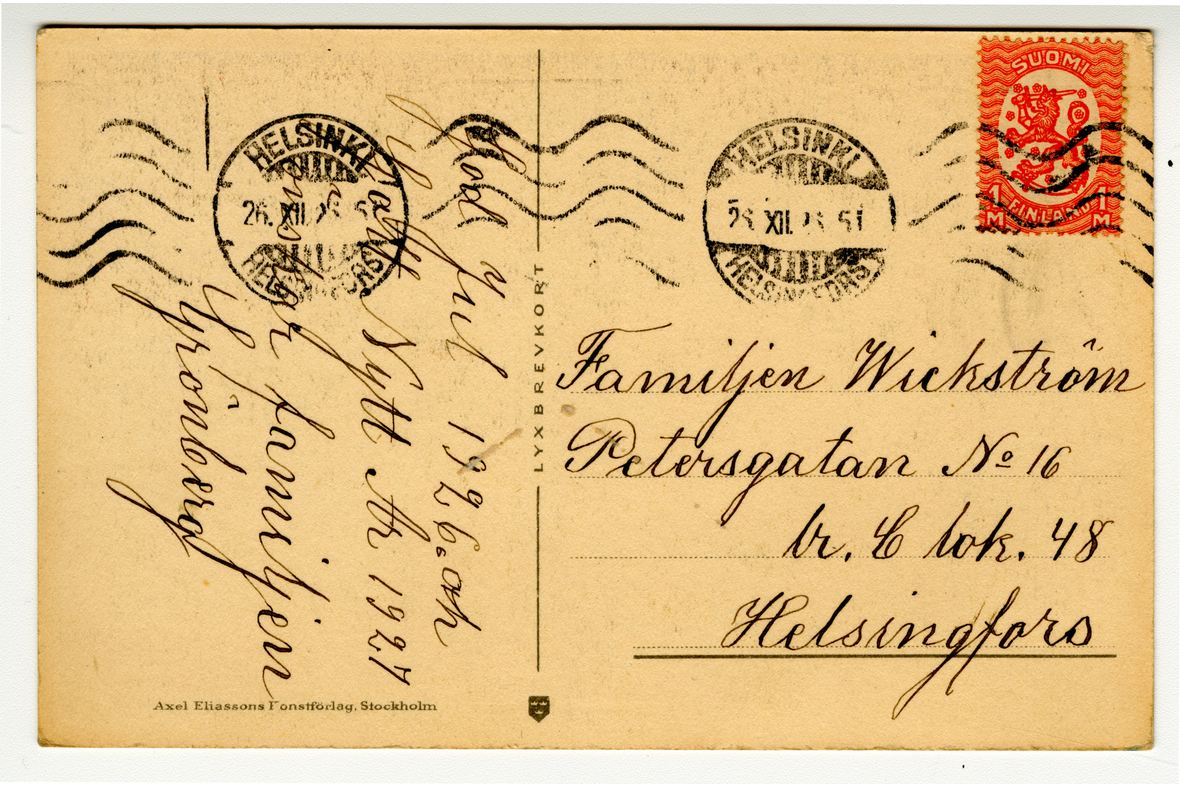 SUOMI
1 M FINLAND 1 M
HELSINKI
26. XII.
HELSINGFORS
HELSINKI
XII.
HELSINGFORS
God Jul 1926. och
Gott Nytt År 1927
önskar familjen
Grönberg
LYXBREVKORT
Familjen Wickström
Petersgatan No 16
tr. C lok. 48
Helsingfors
Axel Eliassons Konstförlag, Stockholm